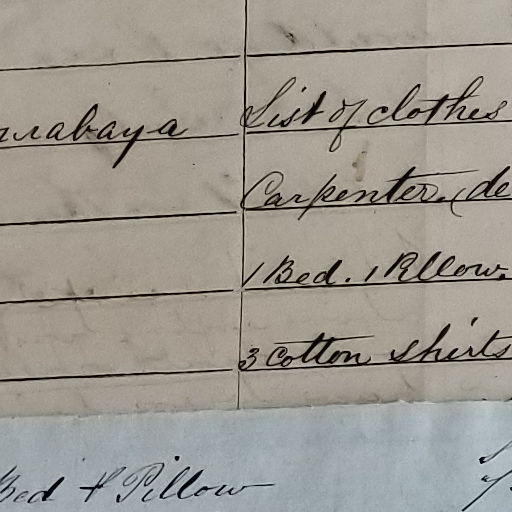 urabaya List of clothes
Carpenter (de
1 Bed. 1 Pillow.
3 Cotton shirts
Bed & Pillow